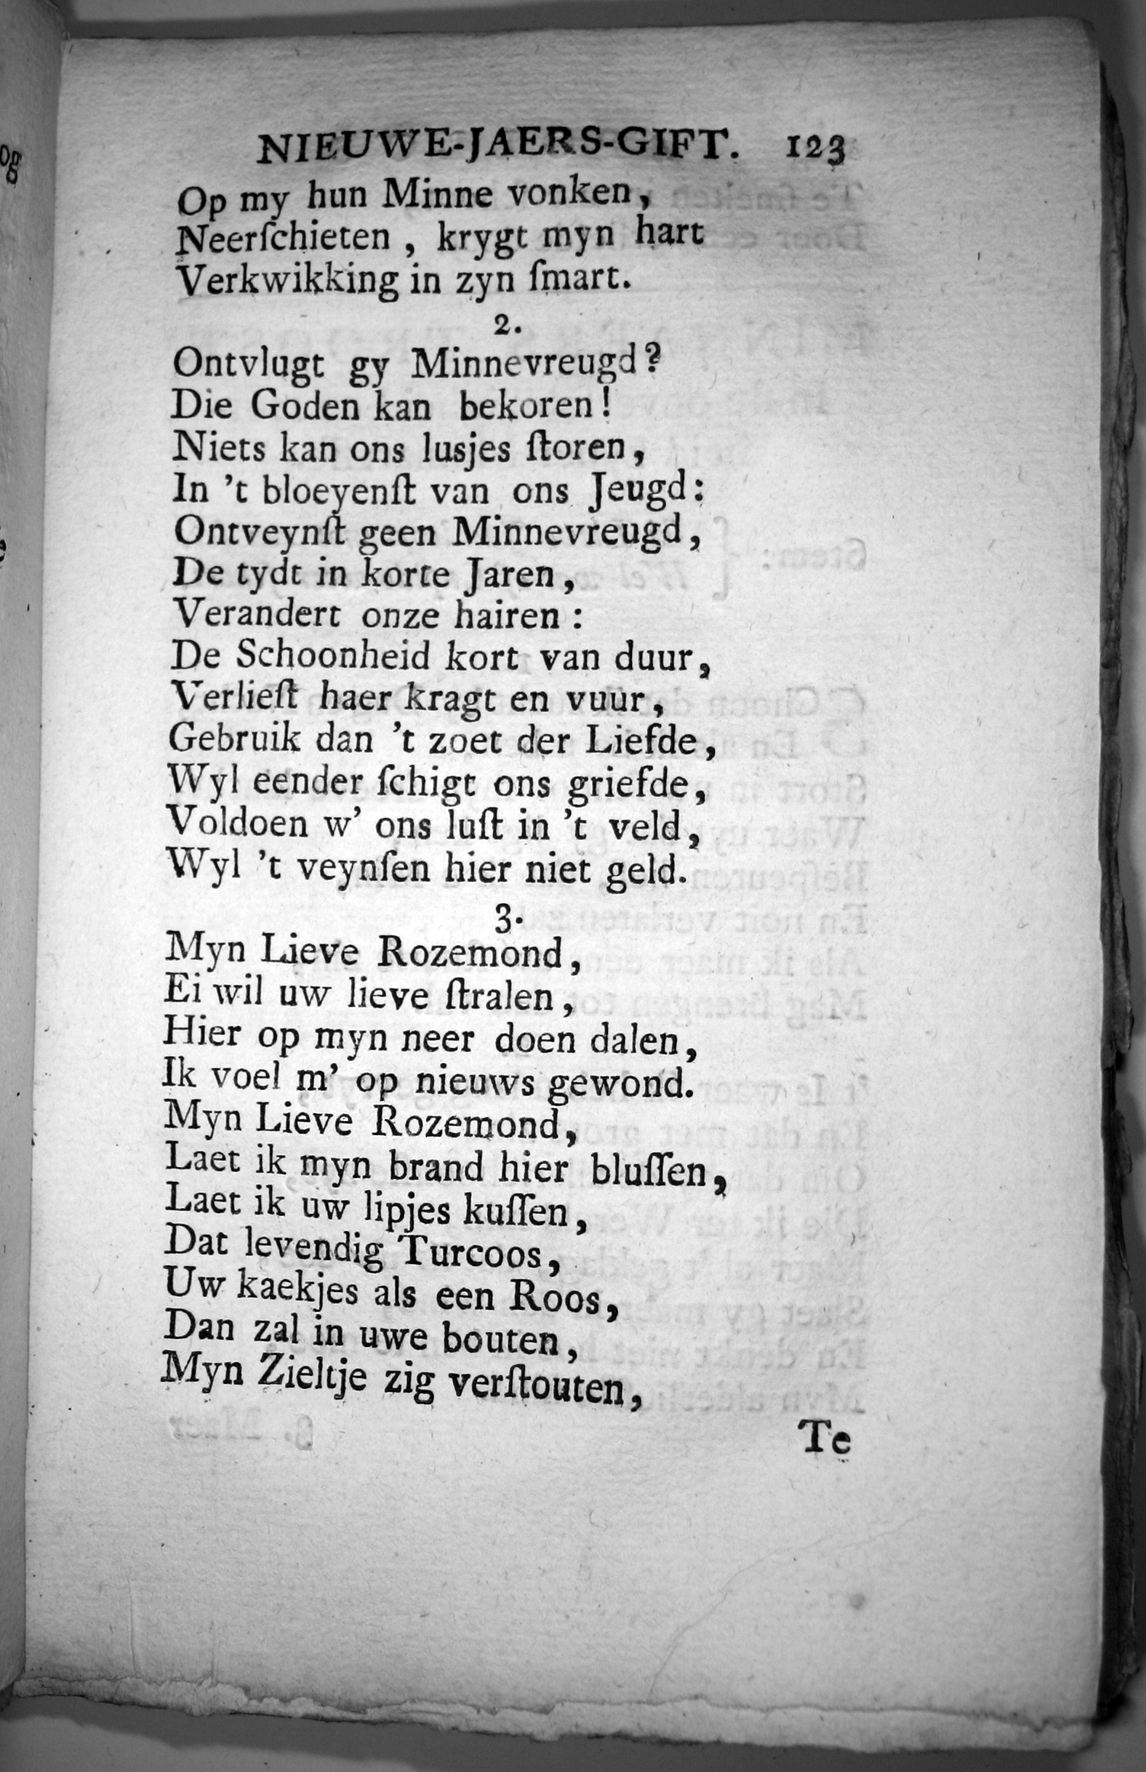 NIEUWE-JAERS-GIFT. 123
Op my hun Minne vonken,
Neerſchieten, krygt myn hart
Verkwikking in zyn ſmart.
2.
Ontvlugt gy Minnevreugd?
Die Goden kan bekoren!
Niets kan ons lusjes ſtoren,
In 't bloeyenſt van ons Jeugd:
Ontveynſt geen Minnevreugd,
De tydt in korte Jaren,
Verandert onze hairen:
De Schoonheid kort van duur,
Verlieſt haer kragt en vuur,
Gebruik dan 't zoet der Liefde,
Wyl eender ſchigt ons griefde,
Voldoen w' ons luſt in 't veld,
Wyl 't veynſen hier niet geld.
3.
Myn Lieve Rozemond,
Ei wil uw lieve ſtralen,
Hier op myn neer doen dalen,
Ik voel m' op nieuws gewond.
Myn Lieve Rozemond,
Laet ik myn brand hier bluſſen,
Laet ik uw lipjes kuſſen,
Dat levendig Turcoos,
Uw kaekjes als een Roos,
Dan zal in uwe bouten,
Myn Zieltje zig verſtouten,
Te